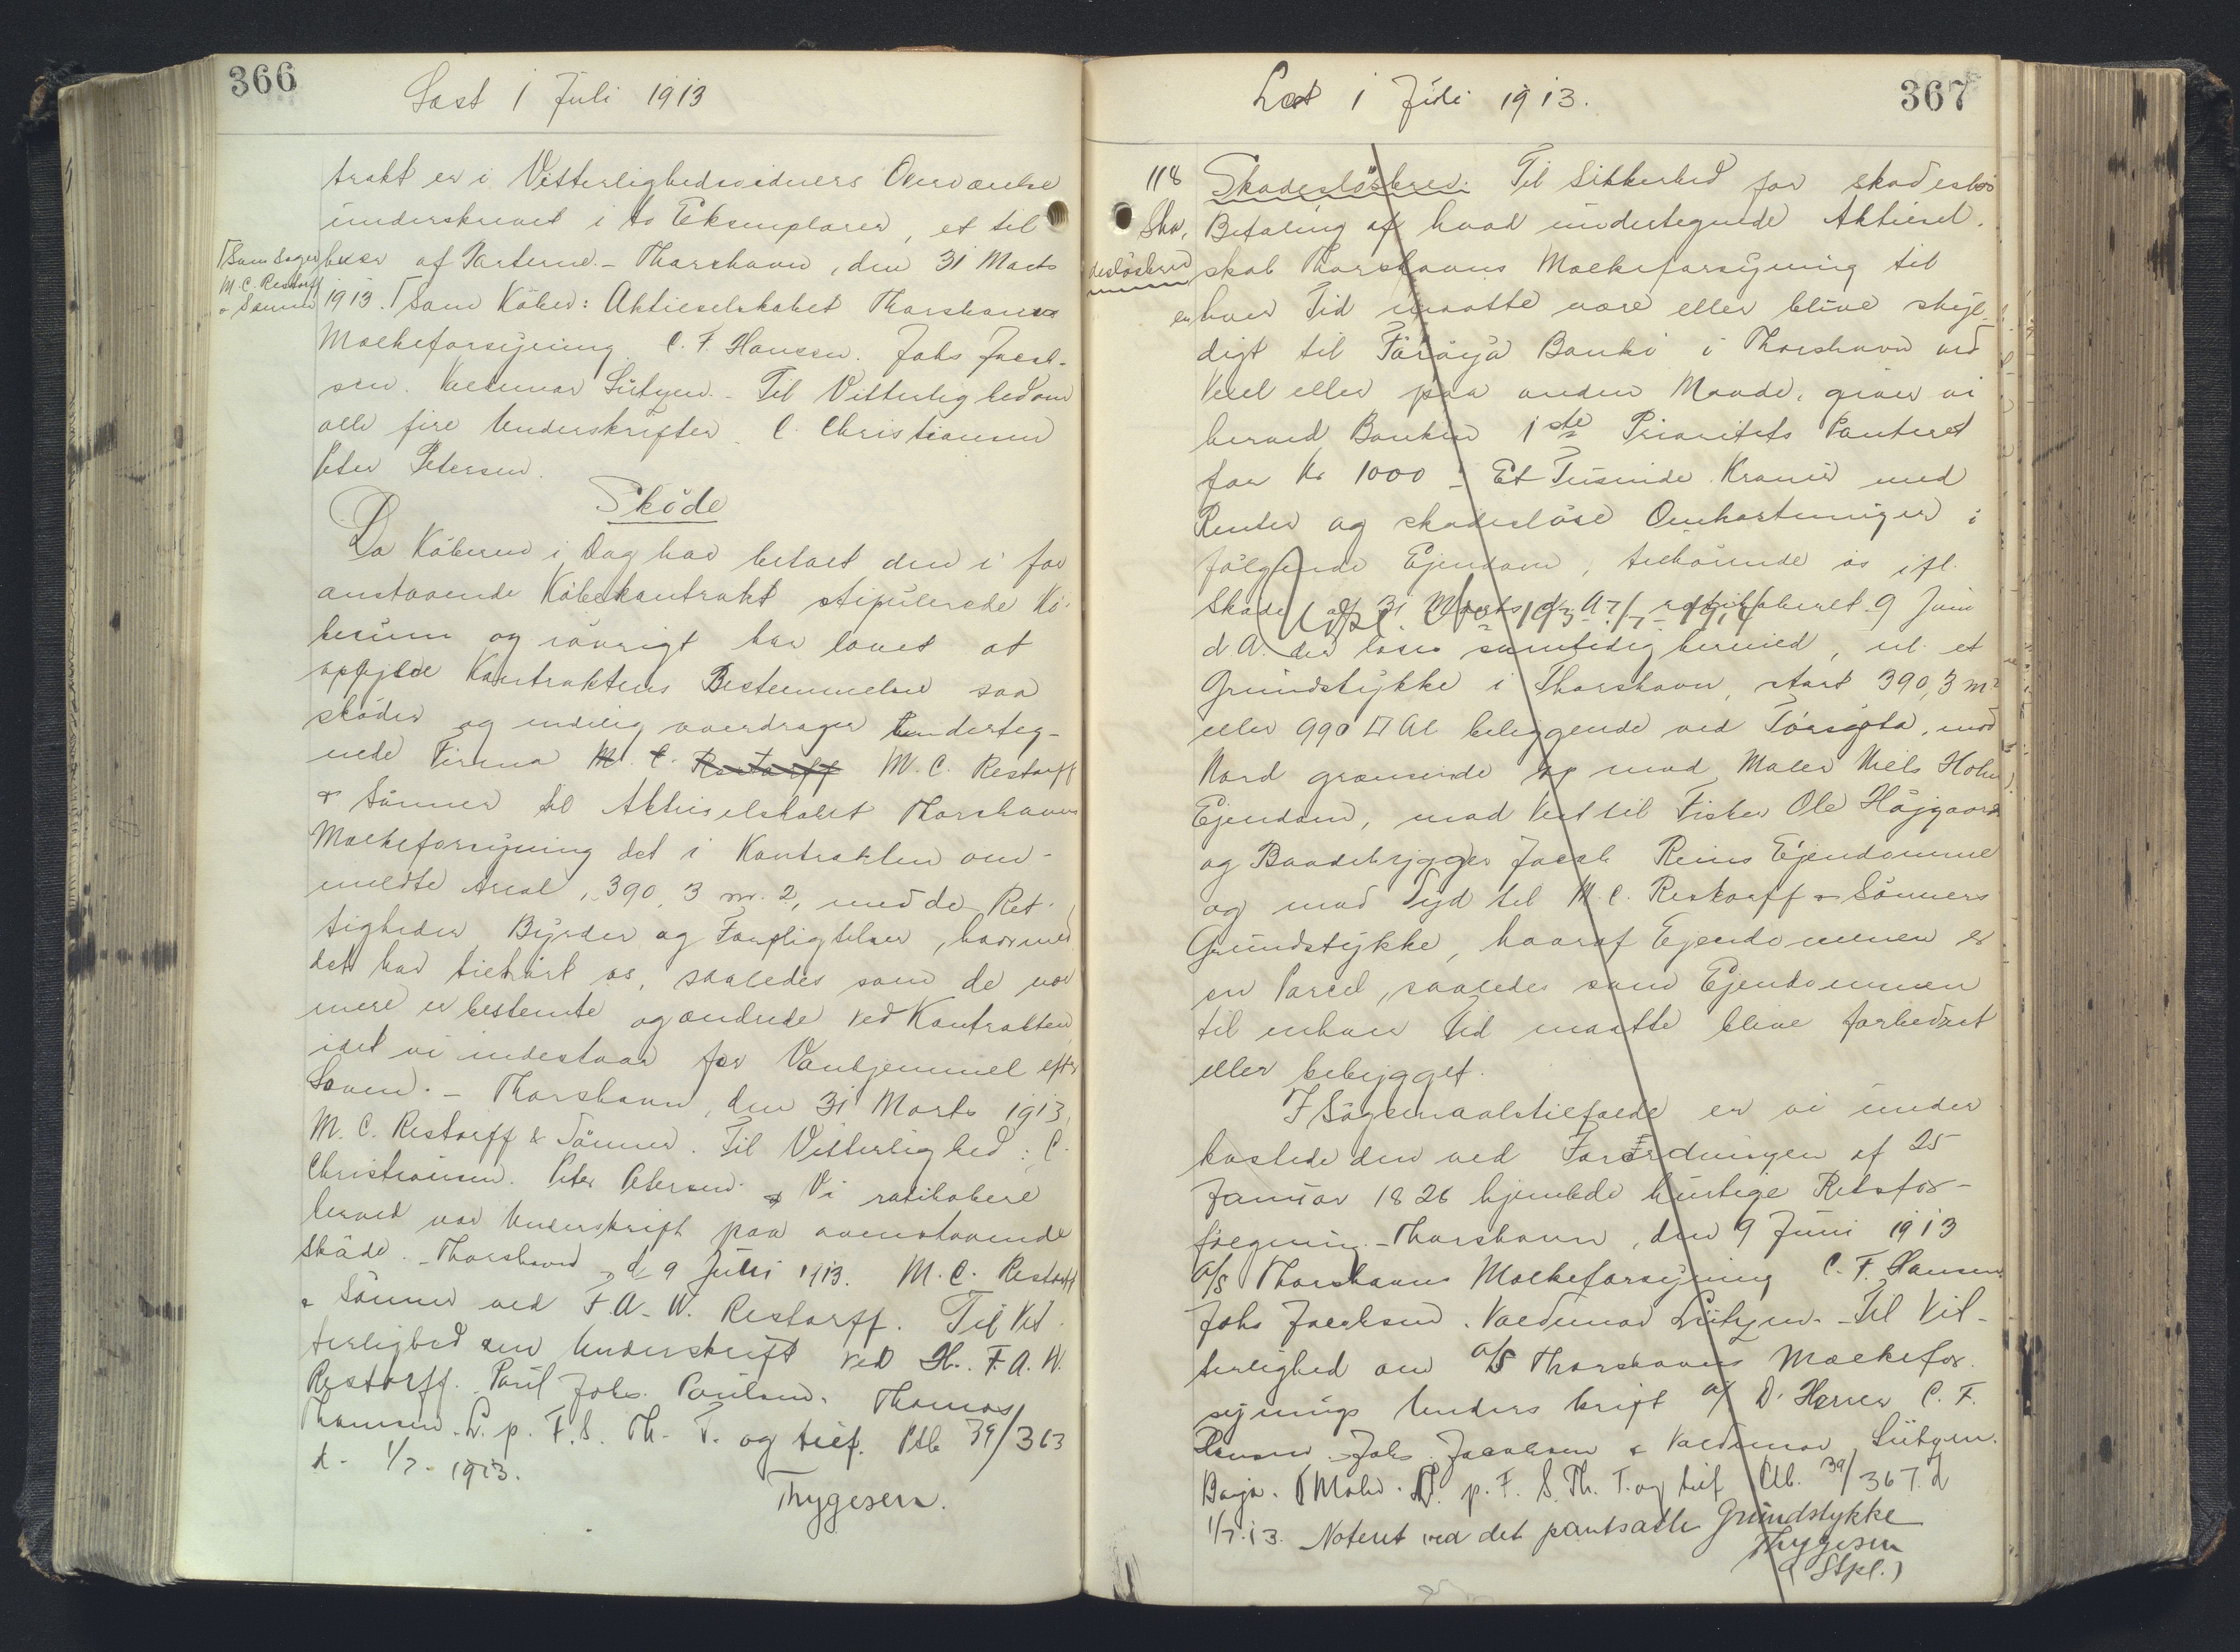 366
Læst 1 Juli 1913
trakt er i Vitterlighedsvidners Overværelse
underskrevet i to Eksemplarer, et til
hver af Parterne. - Thorshavn, den 31 Marts
[Som Sælger
M. C. Restorff
& Sønner
1913. [Som Køber: Aktieselskabet Thorshavns
Mælkeforsyning. C. F. Hansen. Johs Jacob-
sen. Valdemar Lützen. - Til Vitterlighed om
alle fire Underskrifter. C. Christiansen
Peter Petersen.
Sköde
Da Köberen i Dag har betalt den i for
anstaaende Köbekontrakt stipulerede Kö-
besum og iøvrigt har lovet at
opfylde Kontraktens Bestemmelser saa
sköder og endelig overdrager underteg-
nede Firma M. C. Restorff M. C. Restorff
& Sönner til Aktieselskabet Thorshavns
Mælkeforsyning det i Kontrakten om-
meldte Areal, 390,3 m. 2, med de Ret-
tigheder Byrder og Forpligtelser, hvormed
det har tilhört os, saaledes som de nær
mere er bestemte og ændrede ved Kontrakten
idet vi indestaar for Vanhjemmel efter
Loven. - Thorshavn, den 31 Marts 1913,
M. C. Restorff & Sönner. Til Vitterlighed: C.
Christiansen. Peter Petersen. Vi ratihabere
herved vor Underskrift paa ovenstaaende
Sköde. - Thorshavn, d. 9 Juni 1913. M. C. Restorff
& Sönner ved F. A. W. Restorff. Til Vit-
terlighed om Underskrift ved Hr. F. A. W.
Restorff. Poul Johs. Poulsen. Thomas
Thomsen. L. p. F. S. Th. T. og tilf. Ptb 39/363
d. 1/7 - 1913.
Thygesen.
367
Læst 1 Juli 1913.
118
Ska-
deslösbrev
Skadeslösbrev. Til Sikkerhed for skadeslös
Betaling af hvad undertegnede Aktiesel-
skab Thorshavns Mælkeforsyning til
enhver Tid maatte være eller blive skyl-
digt til Föröya Banki i Thorshavn ved
Veksel eller paa anden Maade, giver vi
herved Banken 1ste Prioritets Panteret
for Kr 1000 - Et Tusinde Kroner med
Renter og skadeslöse Omkostninger i
følgende Ejendom, tilhørende os ifl.
Sköde af 31 Marts d. A. ratihaberet 9 Juni
Udsl.
d. A. der læses samtidig hermed, nl. et
Grundstykke i Thorshavn, stort 390,3 m2
eller 990 □ Al beliggende ved Tórsgöta, mod
Nord grænsende op mod Maler Niels Holms
Ejendom, mod Vest til Fisker Ole Höjgaards
og Baadebygger Jacob Reins Ejendomme
og mod Syd til M. C. Restorff & Sönners
Grundstykke, hvoraf Ejendommen er
en Parcel, saaledes som Ejendommen
til enhver Tid maatte blive forbedret
eller bebygget.
I Sögsmaalstilfælde er vi under
kastede den ved Forordningen af 25
Januar 1826 hjemlede hurtige Retsfor-
følgning. - Thorshavn, den 9 Juni 1913
A/S Thorshavns Mælkeforsyning C. F. Hansen.
Johs Jacobsen. Valdemar Lützen. - Til Vit-
terlighed om A/S Thorshavns Mælkefor-
synings Underskrift af D'Herrer C. F.
Hansen - Johs. Jacobsen & Valdemar Lützen.
p. F. S. Th. T. og tilf Ptb. 39/367. d
1/7. 13. Noteret ved det pantsatte Grundstykke
Thygesen
(Stpl.)